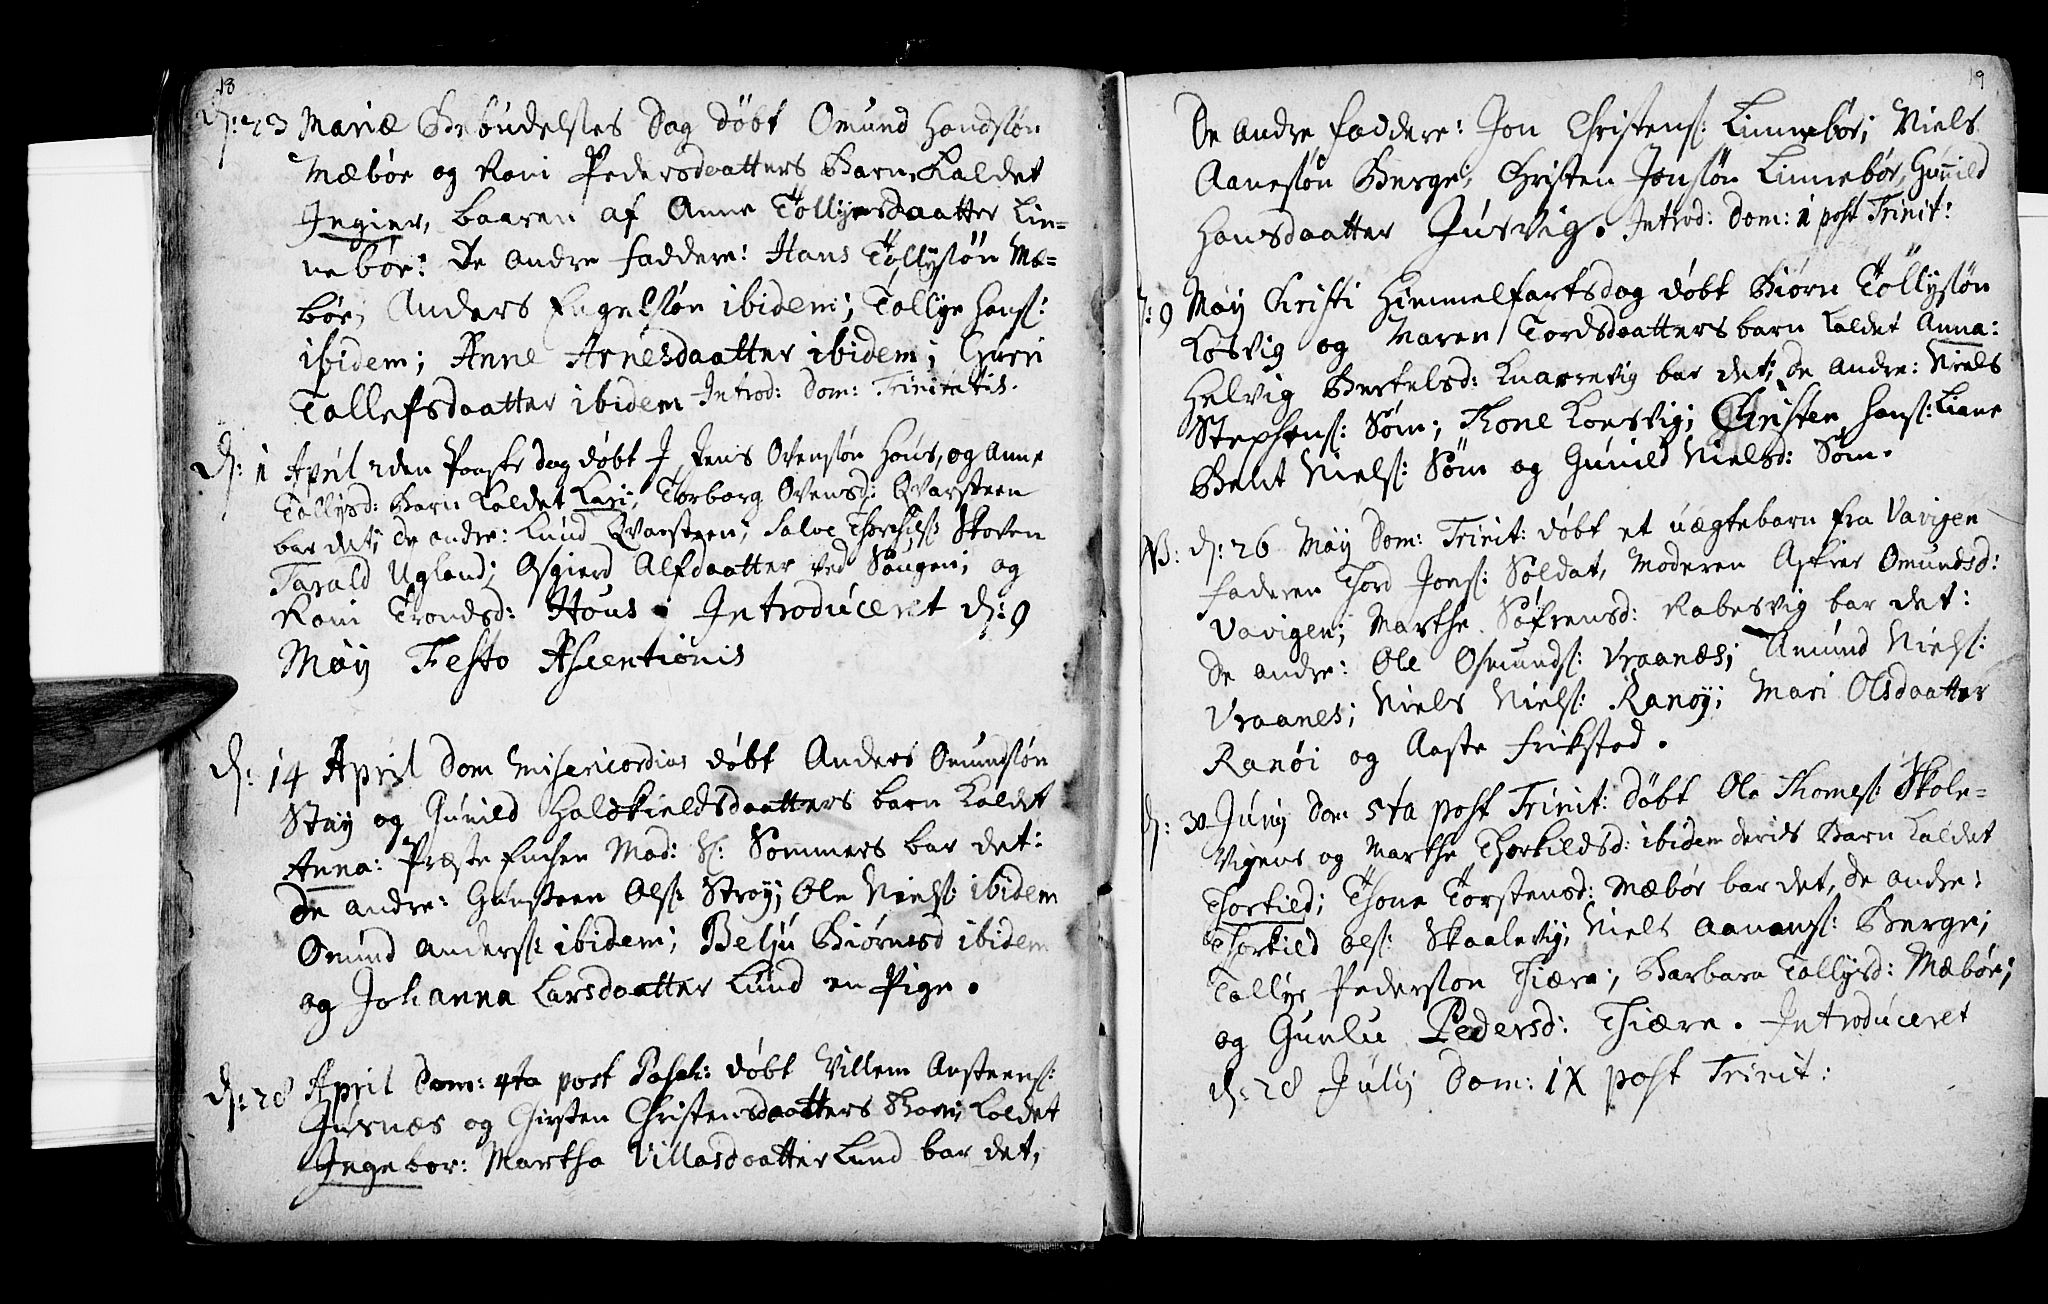 18
d: 23 Mariæ Bebudelses Dag döbt Omund Handsön
Mæböe og Roni Pedersdaatters Barn, kaldet
Ingier, baaren af Anne Töllysdaatter Lin=
neböe: De andre faddere: Hans Töllysön Mæ=
böe, Anders Engelsön ibidem; Tollye Hans:
ibidem; Anne Arnesdaatter ibidem; Guri
Tallefsdaatter ibidem Introd: Dom: Trinitatis.
d: 1 April 2den Paaske dag döbt Jens Ovensön Haus, og Anne
Tollysd: Barn kaldet Kari; Torborg Ovensd: Qvarsteen
bar det; de andre: Knud Qvarsteen; Salve Thorkils: Skoven
Tarald Ugland; Asgierd Alfdaatter ved Sangen; og
Roni Trondsd: Haus; Introduceret d: 9
Maÿ Festo Ascentionis
d: 14 April Dom Misericordias döbt Anders Omundsön
Staÿ og Gunild Halskieldsdaatters barn kaldet
Anna: Præste Enchen Mad: Sl: Sommers bar det:
De andre: Gunsteen Ols: Strøÿ; Ole Niels: ibidem
Omund Anders: ibidem; Beljú Biörnesd ibidem
og Johanna Larsdaatter Lund en Pige.
d: 28 April Dom: 4ta post Pasch: döbt Villem Aasteens:
Jusnæs og Chirsten Christensdaatters Barn; kaldet
Ingebor: Martha Villasdaatter Lund bar det;
19
De andre faddere: Jon Christens: Linneböe; Niels
Aanesön Berge; Christen Jonsön Linneböe, Gunild
Hansdaatter Jusvig. Introd: Dom: 1 post Trinit:
d: 9 Maÿ Christi Himmelfartsdag döbt Biörn Töllysön
Kosvig og Maren Tordsdaatters barn kaldet Anna:
Helvig Bertelsd: Knarrevig bar det; De andre: Niels
Stephens: Söm; Thone Korsvig; Christen Hans: Liane
Bent Niels: Söm og Gunild Nielsd: Söm.
NB: d: 26 Maÿ Dom: Trinit: döbt et uægtebarn fra Vavigen
faderen Thord Jons: Soldat, Moderen Askier Omundsd:
Vavigen; Marthe Söfrensd: Rabesvig bar det:
De andre: Ole Osmunds: Vraanæs; Amund Niels:
Vraanes; Niels Niels: Ranöÿ; Mari Olsdaatter
Ranöi og Aaste Frikstad.
d: 30 Junÿ Dom 5ta post Trinit: döbt Ole Thomes: Skole=
Vigens og Marthe Thorkildsd: ibidem deris Barn kaldet
Thorkild; Thone Torstensd: Mæböe bar det, de andre:
Thorkild Ols: Skaalevig; Niels Aanens: Berge;
Tollys Pedersön Tiære; Barbara Tollysd: Mæböe;
og Gunlu Pedersd: Thiære. Introduceret
d: 28 Julÿ Dom: IX post Trinit: